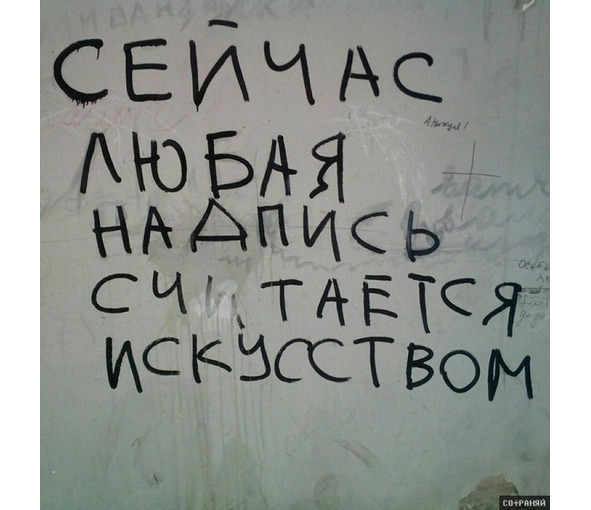 СЕЙЧАС
ЛЮБАЯ
НАДПИСЬ
СЧИТАЕТСЯ
ИСКУССТВОМ
СОХРАНЯЙ